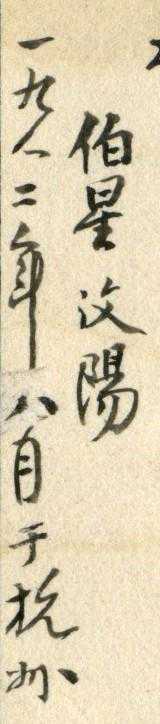 伯星汶陽
一九八二年八月于杭州